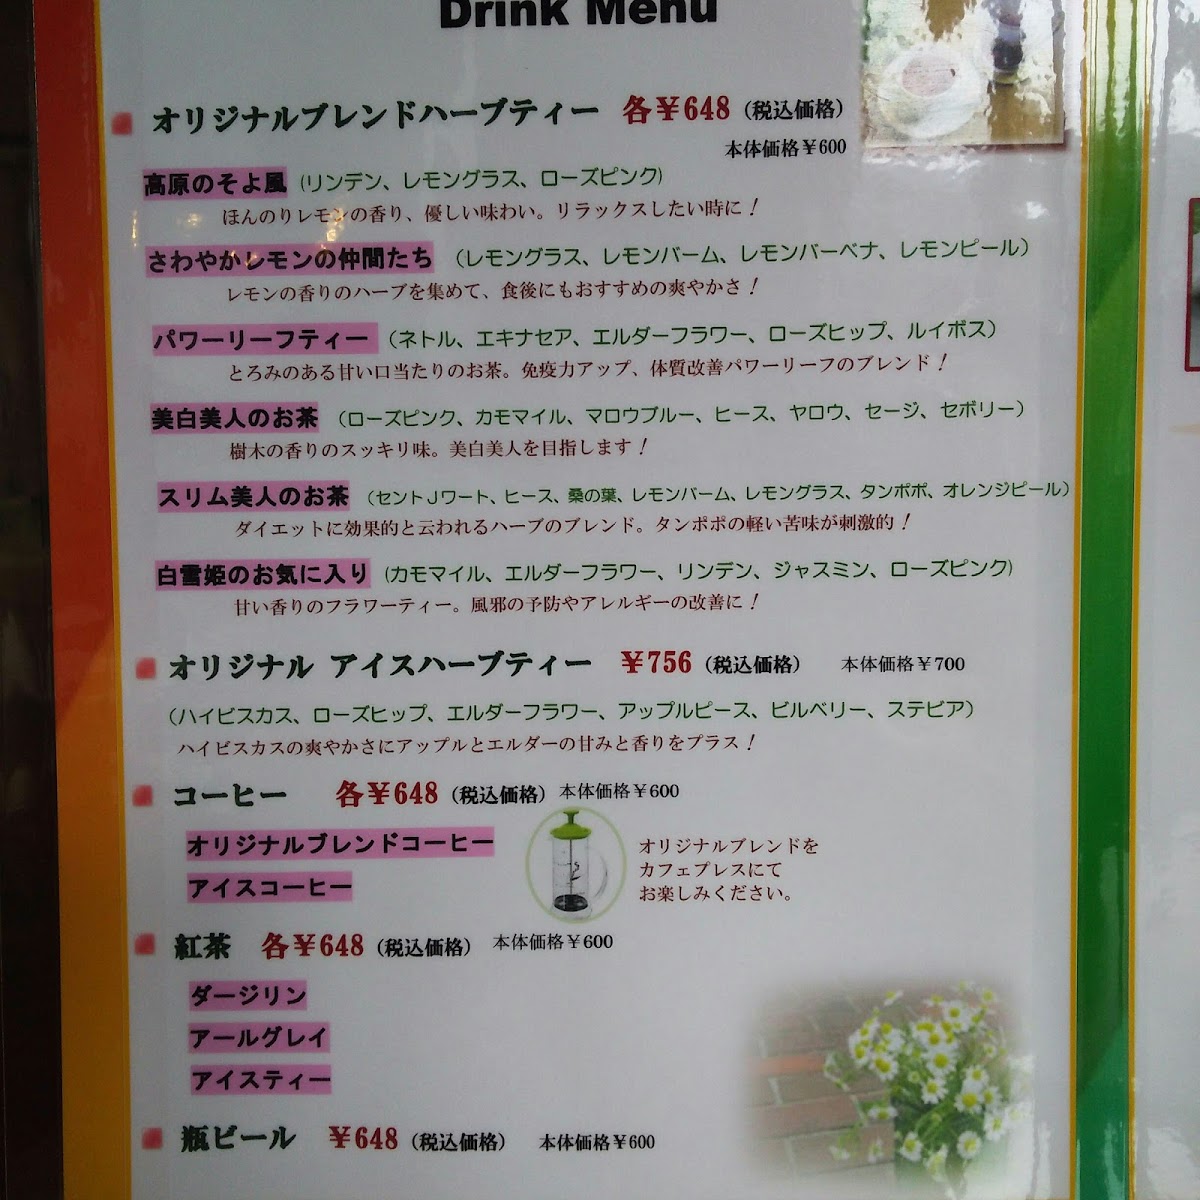 Drink Menu
オリジナルブレンドハーブティー 各￥648 (税込価格)
本体価格￥600
高原のそよ風 (リンデン、レモングラス、ローズピンク)
ほんのりレモンの香り、優しい味わい。リラックスしたい時に！
さわやかレモンの仲間たち (レモングラス、レモンバーム、レモンバーベナ、レモンピール)
レモンの香りのハーブを集めて、食後にもおすすめの爽やかさ！
パワーリーフティー (ネトル、エキナセア、エルダーフラワー、ローズヒップ、ルイボス)
とろみのある甘い口当たりのお茶。免疫力アップ、体質改善パワーリーフのブレンド！
美白美人のお茶 (ローズピンク、カモマイル、マロウブルー、ヒース、ヤロウ、セージ、セボリー)
樹木の香りのスッキリ味。美白美人を目指します！
スリム美人のお茶 (セントJワート、ヒース、桑の葉、レモンバーム、レモングラス、タンポポ、オレンジピール)
ダイエットに効果的と云われるハーブのブレンド。タンポポの軽い苦味が刺激的！
白雪姫のお気に入り (カモマイル、エルダーフラワー、リンデン、ジャスミン、ローズピンク)
甘い香りのフラワーティー。風邪の予防やアレルギーの改善に！
オリジナル アイスハーブティー ￥756 (税込価格) 本体価格￥700
(ハイビスカス、ローズヒップ、エルダーフラワー、アップルピース、ビルベリー、ステビア)
ハイビスカスの爽やかさにアップルとエルダーの甘みと香りをプラス！
コーヒー 各￥648 (税込価格) 本体価格￥600
オリジナルブレンドコーヒー
アイスコーヒー
オリジナルブレンドを
カフェプレスにて
お楽しみください。
紅茶 各￥648 (税込価格) 本体価格￥600
ダージリン
アールグレイ
アイスティー
瓶ビール ￥648 (税込価格) 本体価格￥600